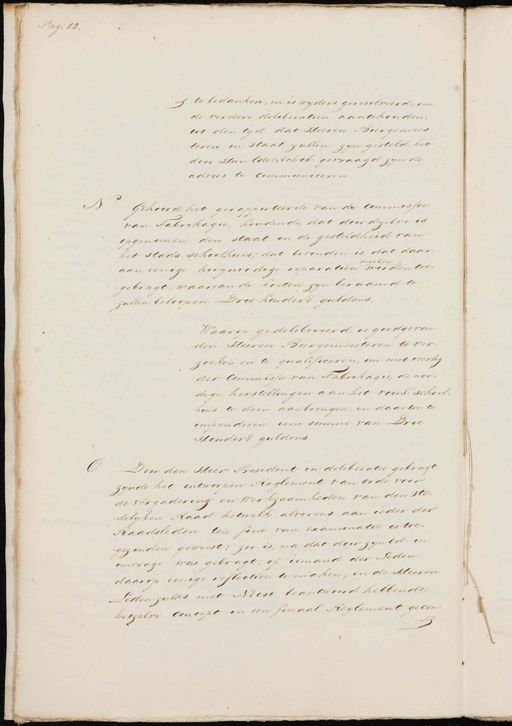 Pag. 12.
te bedanken, en is wyders geresolveerd, om
de verdere deliberatien aantehouden,
tot den tyd dat Heeren Burgemees
teren in staat zullen zyn gesteld het
door Hun Edelachtb. gevraagd zynde
advies te communiceren
N.º Gehoord het gerapporteerde van de Commissie
van Fabrikagie, houdende dat door dezelve is
opgenomen den staat en de gesteldheid van
het stads schoolhuis; dat bevonden is, dat daar
aan eenige hoognoodige reparatien moeten worden toe
gebragt, waarvan de kosten zyn beraamd te
zullen beloopen Drie honderd guldens.
Waarop gedelibereerd, is goedgevonden
den Heeren Burgemeesteren te ver
zoeken en te qualificeren, om met overleg
der Commissie van Fabrikagie, de noo
dige herstellingen aan het voorsz school
huis te doen aanbrengen, en daartoe te
impenderen eene somme van Drie
Honderd guldens.
O Door den Heer President in deliberatie gebragt
zynde het ontworpen Reglement van orde voor
de vergadering en werkzaamheden van den ste
delyken Raad, hetwelk alvorens aan ieder der
Raadsleden ten fine van examinatie is toe
gezonden geweest; zoo is, na dat door zynEd. in
omvrage was gebragt, of iemand der Leden
daarop eenige reflectien te maken, en de Heeren
Leden zulks met Neen beantwoord hebbende,
hetzelve concept in een finaal Reglement gecon